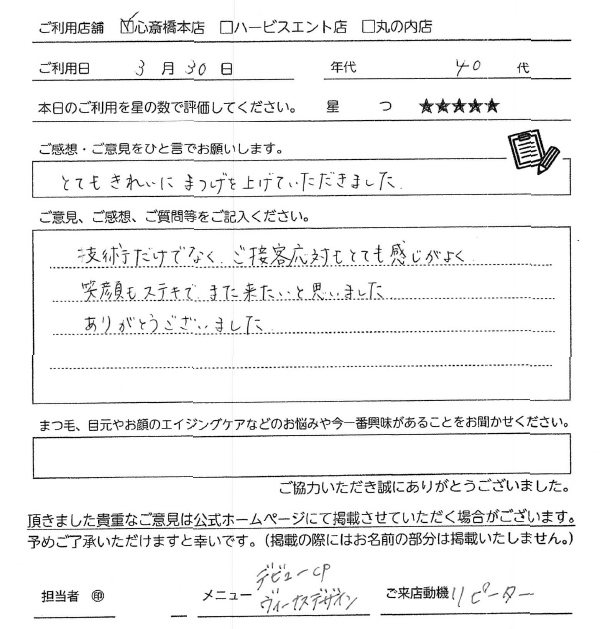 ご利用店舗 ☑心斎橋本店 □ハービスエント店 □丸の内店
ご利用日 3 月 30 日 年代 40 代
本日のご利用を星の数で評価してください。 星 つ ★★★★★
ご感想・ご意見をひと言でお願いします。
とてもきれいにまつげを上げていただきました
ご意見、ご感想、ご質問等をご記入ください。
技術だけでなく、ご接客応対もとても感じがよく
笑顔もステキで、また来たいと思いました
ありがとうございました
まつ毛、目元やお顔のエイジングケアなどのお悩みや今一番興味があることをお聞かせください。
ご協力いただき誠にありがとうございました。
頂きました貴重なご意見は公式ホームページにて掲載させていただく場合がございます。
予めご了承いただけますと幸いです。(掲載の際にはお名前の部分は掲載いたしません。)
デビューCP
担当者 ㊞ メニュー ヴィーナスデザイン ご来店動機 リピーター